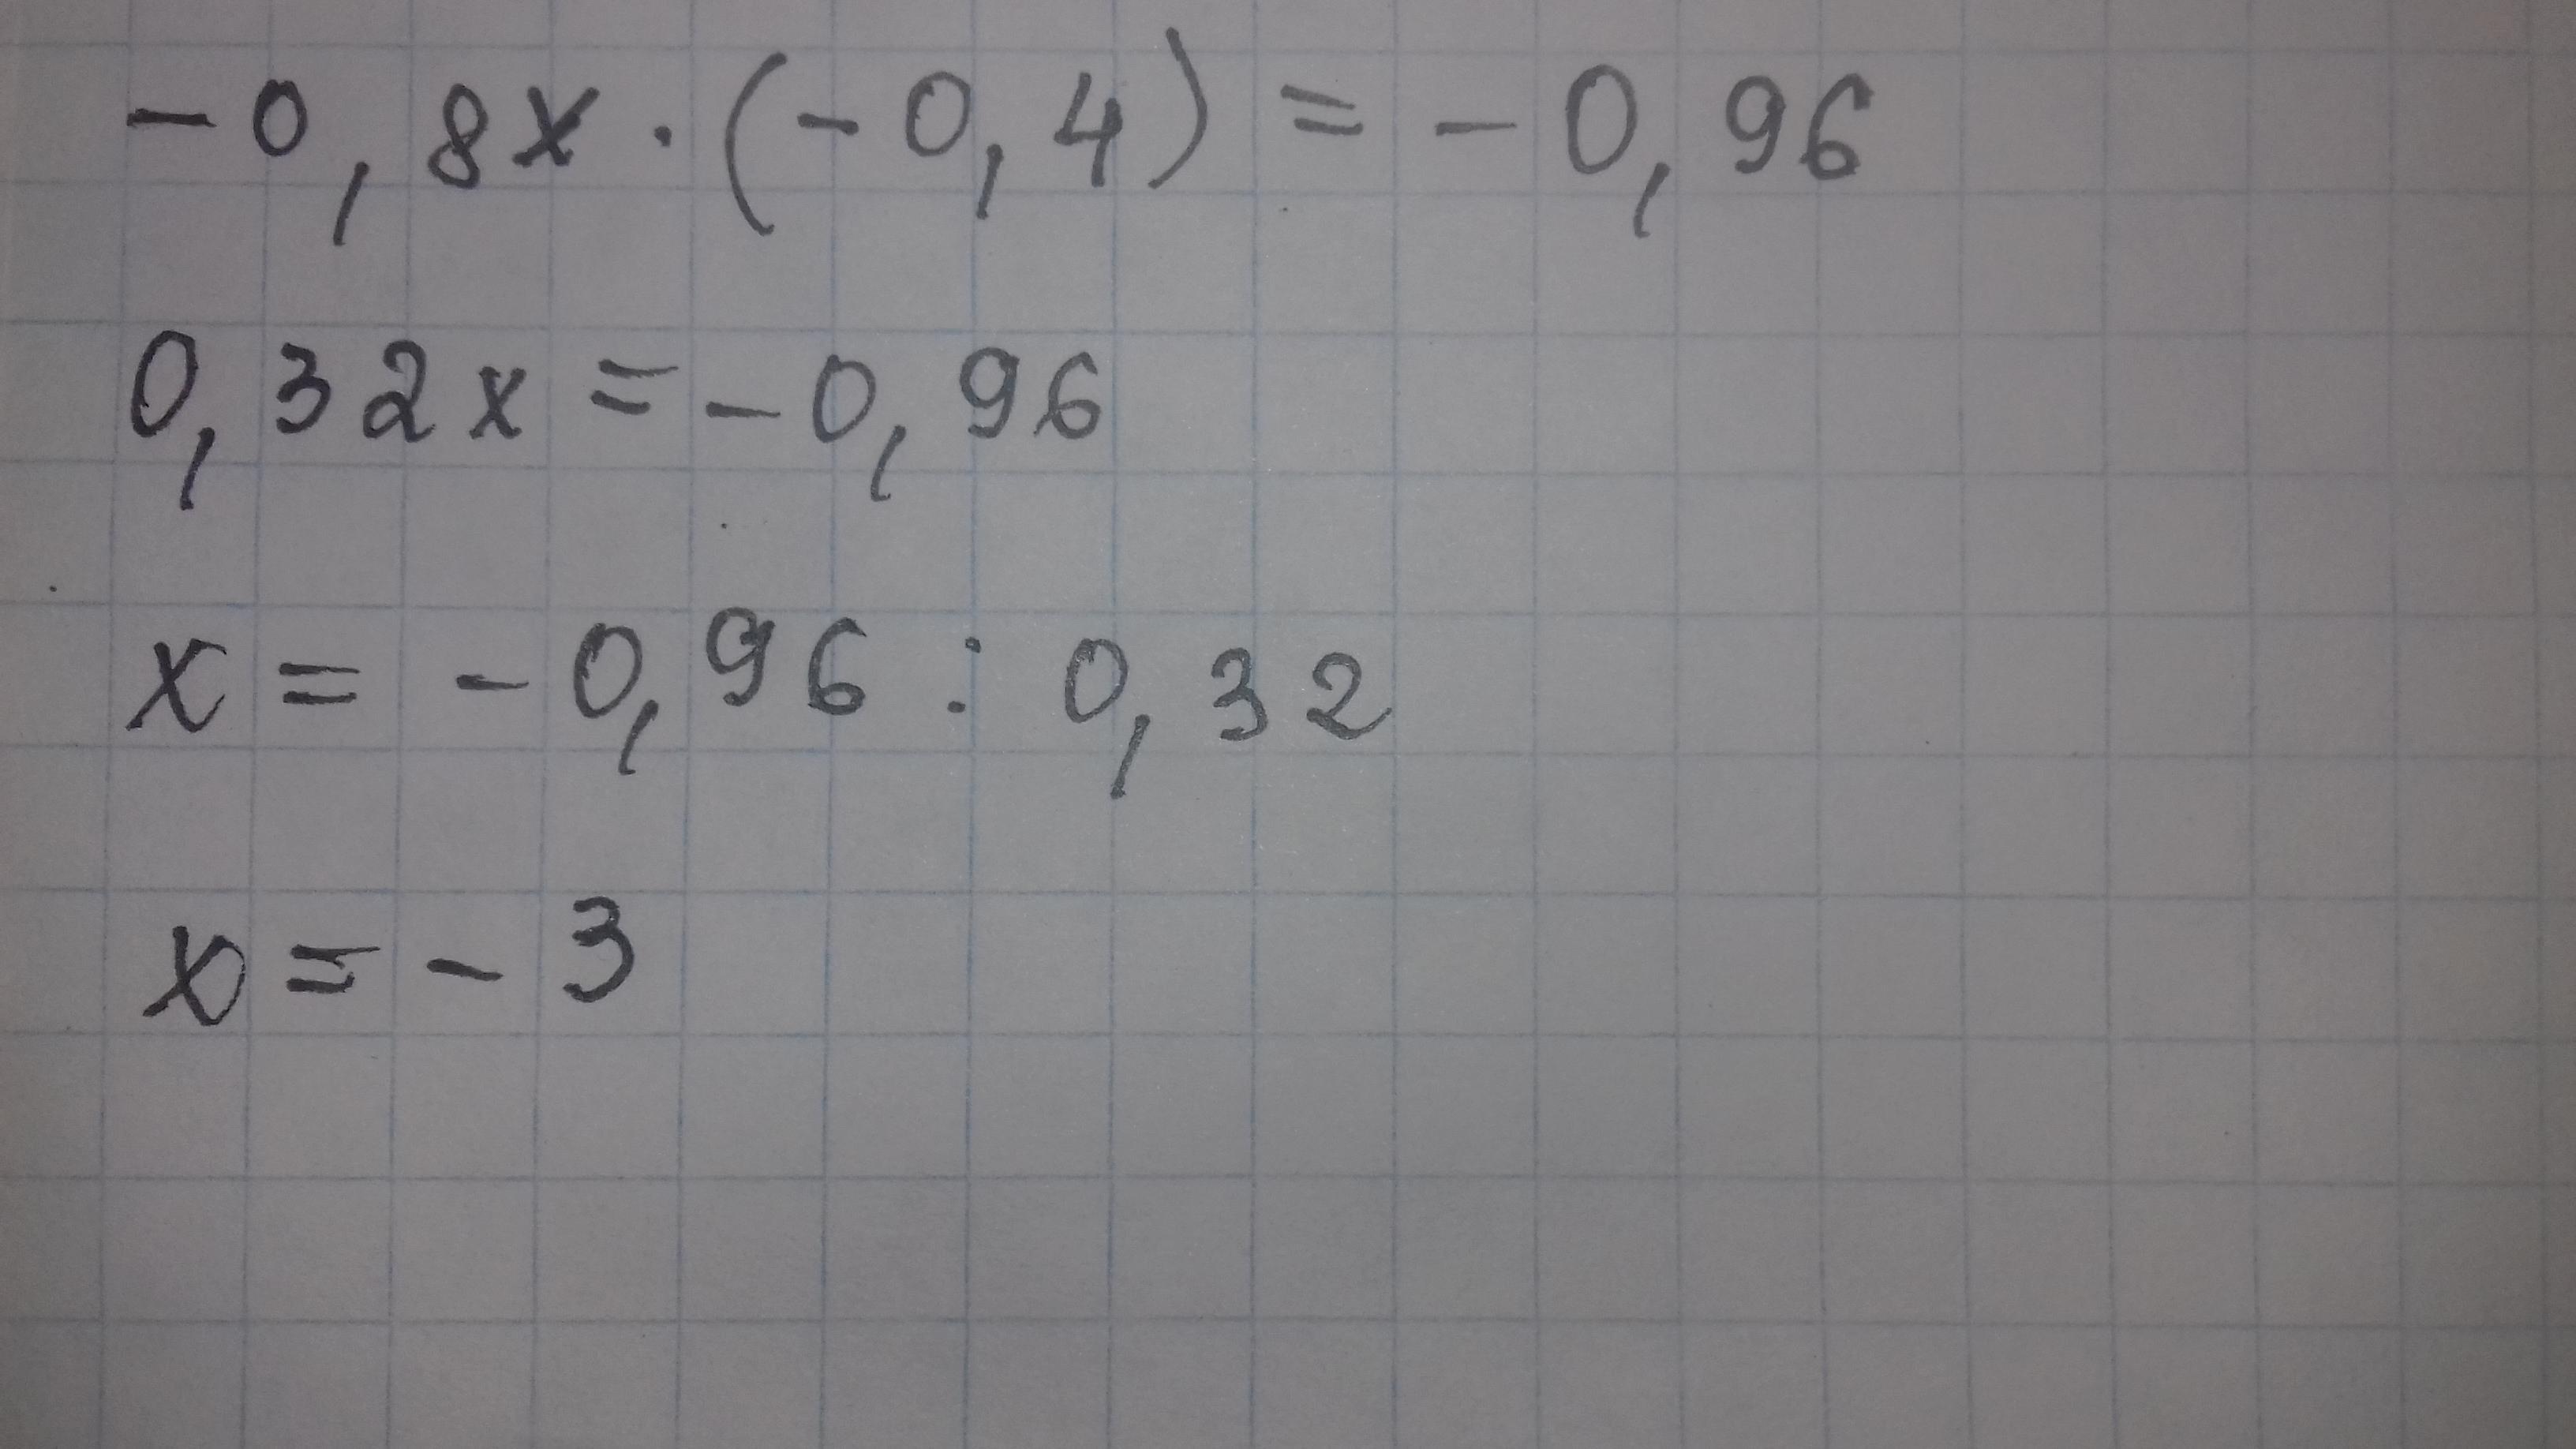 -0,8x·(-0,4)=-0,96
0,32x=-0,96
x=-0,96:0,32
x=-3